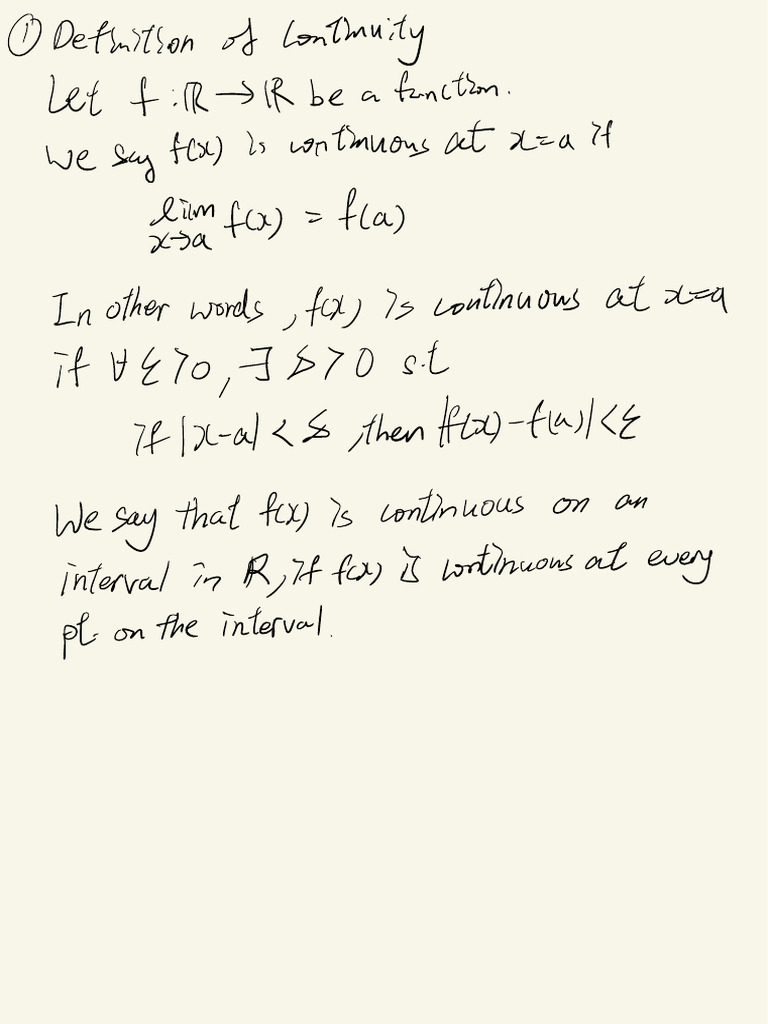 ① Definition of Continuity
Let f : ℝ → ℝ be a function.
We say f(x) is continuous at x=a if
lim f(x) = f(a)
x→a
In other words, f(x) is continuous at x=a
if ∀ ε>0, ∃ δ>0 s.t
if |x-a| < δ, then |f(x)-f(a)|<ε
We say that f(x) is continuous on an
interval in ℝ, if f(x) is continuous at every
pt. on the interval.